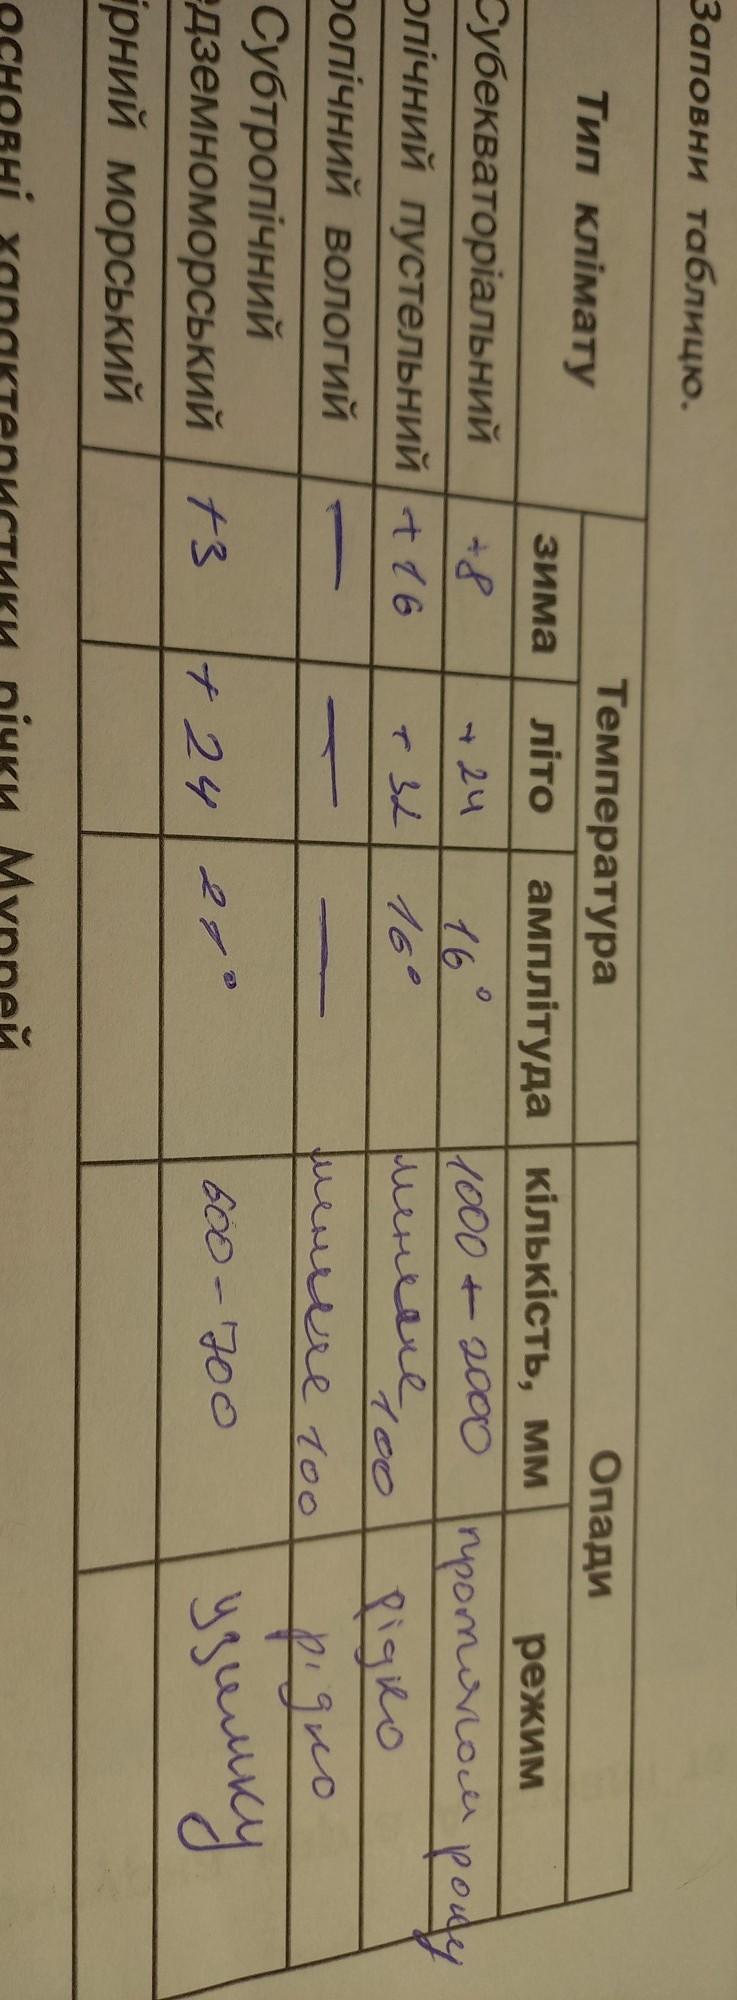 Заповни таблицю.
Тип клімату Температура Опади
зима літо амплітуда кількість, мм режим
Субекваторіальний +8 +24 16° 1000 + 2000 протягом року
опічний пустельний +16 +32 16° менше 100 рідко
ропічний вологий — — — менше 100 рідко
Субтропічний
едземноморський +3 +24 21° 600-700 узимку
ірний морський
основні характеристики річки Муррей